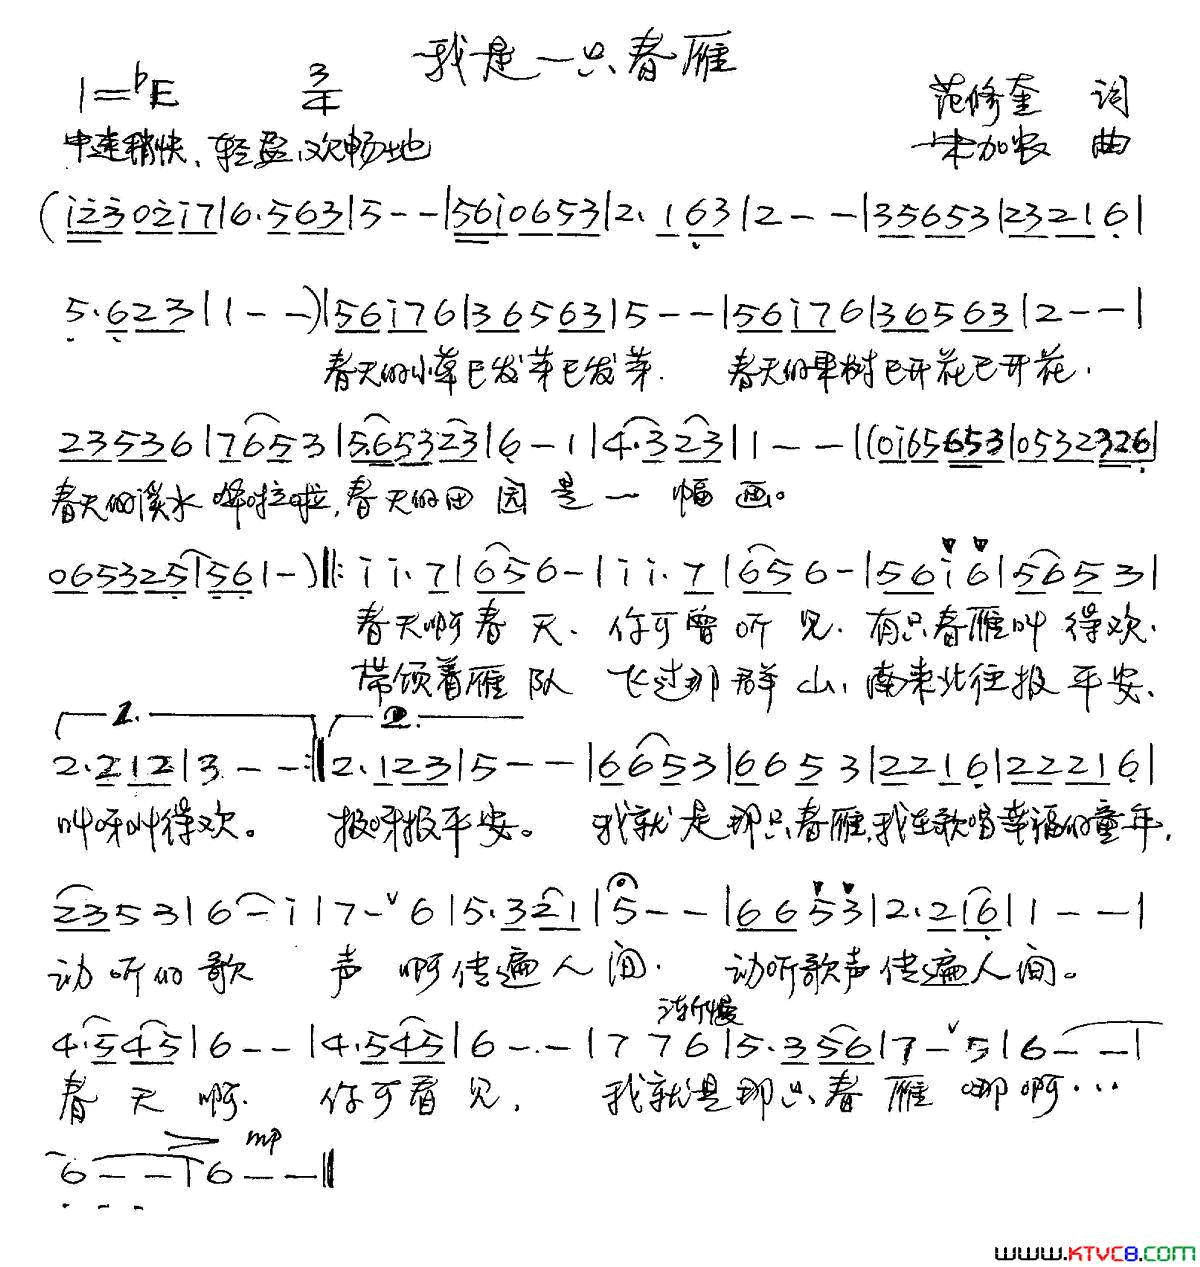 我是一只春雁
1=♭E 3/4 范修奎 词
中速稍快、轻盈、欢畅地 宋加农 曲
(i̇2̇3̇ 02̇i̇7|6.563|5--|56i̇0653|2.163|2---|35653|23216|
5.623|1--)|56i̇76|36563|5--|56i̇76|36563|2--|
春天的小草已发芽已发芽. 春天的果树已开花已开花.
23536|7653|5.65323|6-1|4.323|1---|(0i̇65653|0532326|
春天的溪水哗啦啦,春天的田园是一幅画。
065325|561-)‖:i̇i̇.7|656-|i̇i̇.7|656-|56i̇6|5653|
春天啊春天. 你可曾听见. 有只春雁叫得欢.
带领着雁队 飞过那群山, 南来北往报平安、
1. 2.
2.212|3--:‖2.123|5---|6653|6653|2216|22216|
叫呀叫得欢。 报呀报平安。 我就是那只春雁,我在歌唱幸福的童年,
23553|6-i̇|7-ᵛ6|5.321|5--|6653|2.216|1--|
动听的歌声啊传遍人间. 动听歌声传遍人间。
渐慢
4.545|6--|4.545|6---|776|5.356|7-ᵛ5|6--|
春天啊. 你可看见, 我就是那只春雁哪啊…
> mp
6--|6--‖
www.KTVC8.com